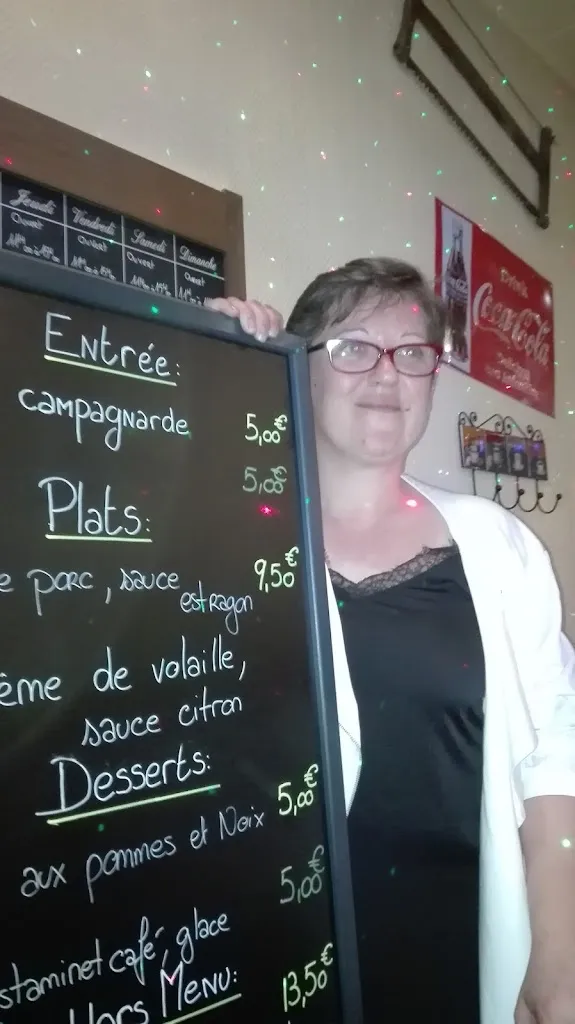 Jeudi Vendredi Samedi Dimanche
Ouvert Ouvert Ouvert Ouvert
Entrée:
campagnarde 5,00€
5,00€
Plats:
e porc, sauce 9,50€
estragon
ême de volaille,
sauce citron
Desserts:
5,00€
aux pommes et Noix
5,00€
staminet café, glace
Hors Menu: 13,50€
Drink
Coca-Cola
Delicious